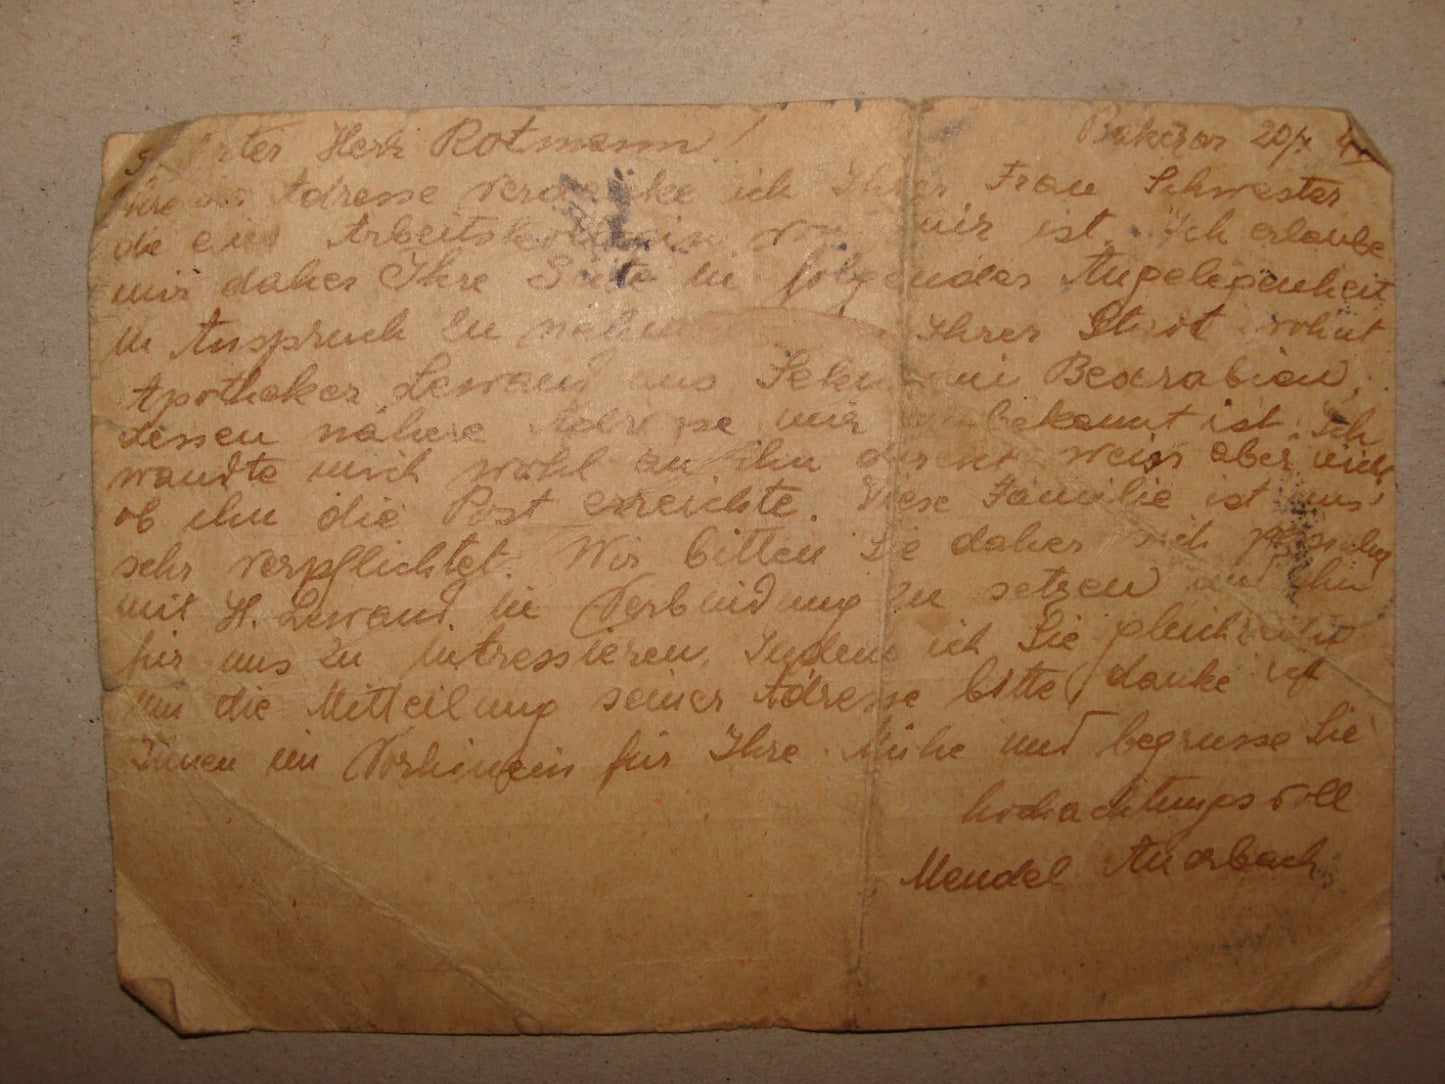 Herr Rotmann! Bakczar 20/
Adresse verdanke ich Ihrer Frau Schwester
die eine Arbeitskollegin von mir ist. Ich erlaube
mir daher Ihre Güte in folgender Angelegenheit
in Anspruch zu nehmen Ihrer Stadt wohnt
Apotheker Lewand aus Bexarabien,
dessen nähere Adresse mir unbekannt ist. Ich
wandte mich wohl an ihn direkt weiss aber nicht
ob ihn die Post erreichte. Diese Familie ist uns
sehr verpflichtet. Wir bitten Sie daher sich persönlich
mit H. Lewand in Verbindung zu setzen und ihn
für uns zu intressieren. Indem ich Sie gleichzeitig
um die Mitteilung seiner Adresse bitte, danke ich
Ihnen im Vorhinein für Ihre Mühe und begrusse Sie
hochachtungsvoll
Mendel Auerbach